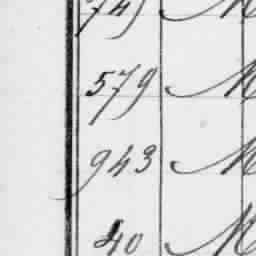 579 M
943 M
40 M